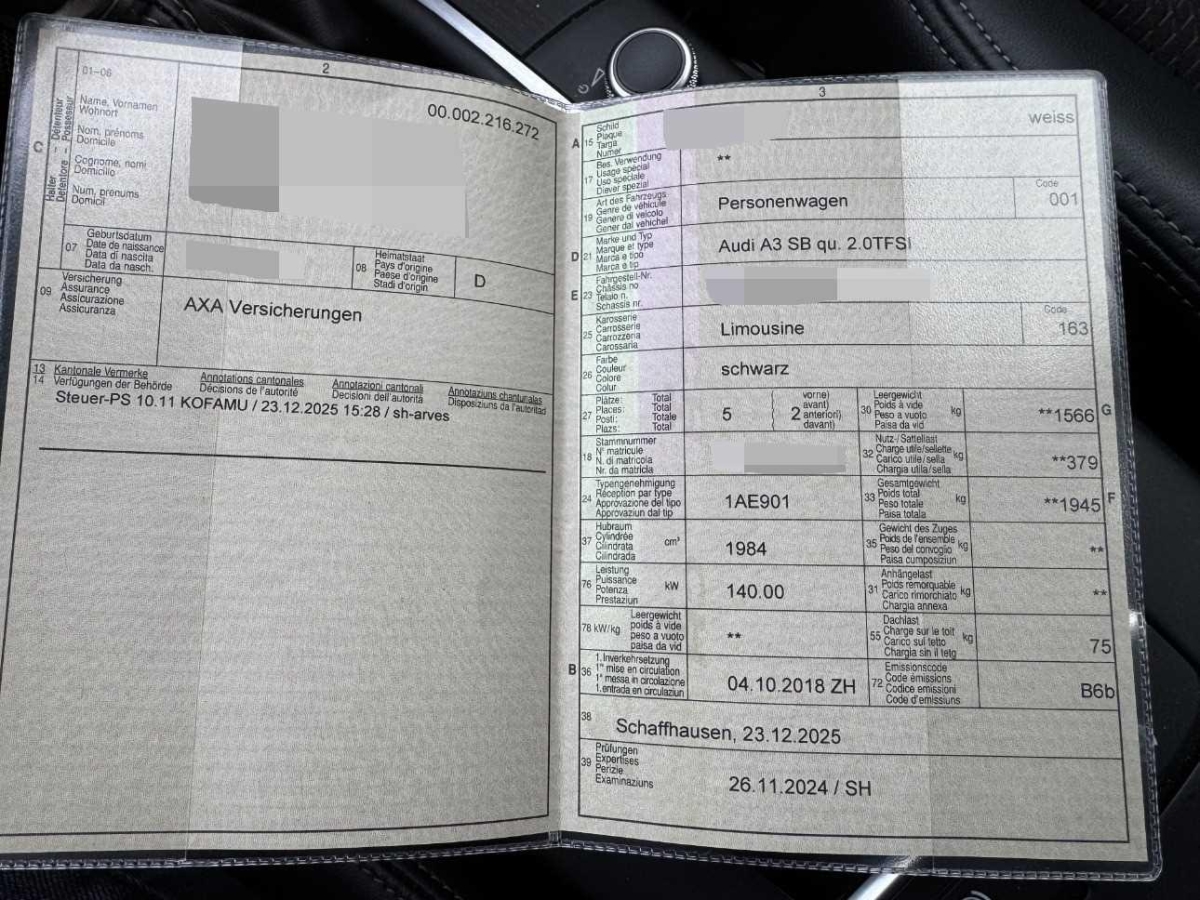 2
01-06
00.002.216.272
C
Halter - Détenteur
Detentore - Possessur
Name, Vornamen
Wohnort
Nom, prénoms
Domicile
Cognome, nomi
Domicilio
Num, prenums
Domicil
07
Geburtsdatum
Date de naissance
Data di nascita
Data da nasch.
08
Heimatstaat
Pays d'origine
Paese d'origine
Stadi d'origin
D
09
Versicherung
Assurance
Assicurazione
Assicuranza
AXA Versicherungen
13 Kantonale Vermerke
14 Verfügungen der Behörde
Annotations cantonales
Décisions de l'autorité
Annotazioni cantonali
Decisioni dell'autorità
Annotaziuns chantunalas
Disposiziuns da l'autoritad
Steuer-PS 10.11 KOFAMU / 23.12.2025 15:28 / sh-arves
3
A 15
Schild
Plaque
Targa
Numer
weiss
17
Bes. Verwendung
Usage spécial
Uso speciale
Diever spezial
**
19
Art des Fahrzeugs
Genre de véhicule
Genere di veicolo
Gener dal vehichel
Personenwagen
Code
001
D 21
Marke und Typ
Marque et type
Marca e tipo
Marca e tip
Audi A3 SB qu. 2.0TFSI
E 23
Fahrgestell-Nr.
Châssis no
Telaio n.
Schassis nr.
25
Karosserie
Carrosserie
Carrozzeria
Carossaria
Limousine
Code
163
26
Farbe
Couleur
Colore
Colur
schwarz
27
Plätze: Total
Places: Total
Posti: Totale
Plazs: Total
5
2
vorne)
avant)
anteriori)
davant)
30
Leergewicht
Poids à vide
Peso a vuoto
Paisa da vid
kg
**1566
G
18
Stammnummer
N° matricule
N. di matricola
Nr. da matricla
32
Nutz-/Sattellast
Charge utile/sellette
Carico utile/sella
Chargia utila/sella
kg
**379
24
Typengenehmigung
Réception par type
Approvazione del tipo
Approvaziun dal tip
1AE901
33
Gesamtgewicht
Poids total
Peso totale
Paisa totala
kg
**1945
F
37
Hubraum
Cylindrée
Cilindrata
Cilindrada
cm³
1984
35
Gewicht des Zuges
Poids de l'ensemble
Peso del convoglio
Paisa cumposiziun
kg
**
76
Leistung
Puissance
Potenza
Prestaziun
kW
140.00
31
Anhängelast
Poids remorquable
Carico rimorchiato
Chargia annexa
kg
**
78 kW/kg
Leergewicht
poids à vide
peso a vuoto
paisa da vid
**
55
Dachlast
Charge sur le toit
Carico sul tetto
Chargia sin il tetg
kg
75
B 36
1. Inverkehrsetzung
1re mise en circulation
1a messa in circolazione
1. entrada en circulaziun
04.10.2018 ZH
72
Emissionscode
Code émissions
Codice emissioni
Code d'emissiuns
B6b
38
Schaffhausen, 23.12.2025
39
Prüfungen
Expertises
Perizie
Examinaziuns
26.11.2024 / SH